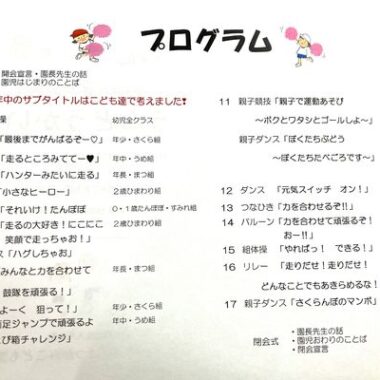 プログラム
開会宣言・園長先生の話
園児はじまりのことば
年中のサブタイトルはこども達で考えました!
操 幼児全クラス
「最後までがんばるぞー♡」 年少・さくら組
「走るところみててー♥」 年中・うめ組
「ハンターみたいに走る」 年長・まつ組
「小さなヒーロー」 2歳ひまわり組
「それいけ!たんぽぽ 0・1歳たんぽぽ・すみれ組
「走るの大好き!にこにこ 2歳ひまわり組
笑顔で走っちゃお!」
ス「ハグしちゃお」
みんなと力を合わせて 年長・まつ組
鼓隊を頑張る!」
よーく 狙って!」 年少・さくら組
両足ジャンプで頑張るよ 年中・うめ組
とび箱チャレンジ」
11 親子競技「親子で運動あそび
～ボクとワタシとゴールしよ～」
親子ダンス「ぼくたちぶどう
～ぼくたちたべごろです～」
12 ダンス 「元気スイッチ オン!」
13 つなひき「力を合わせるぞ!!」
14 バルーン「力を合わせて頑張るぞ
おー!!」
15 組体操 「やればっ! できる!」
16 リレー 「走りだせ!走りだせ!
どんなことでもあきらめるな!
17 親子ダンス「さくらんぼのマンボ」
閉会式
・園長先生の話
・園児おわりのことば
・閉会宣言